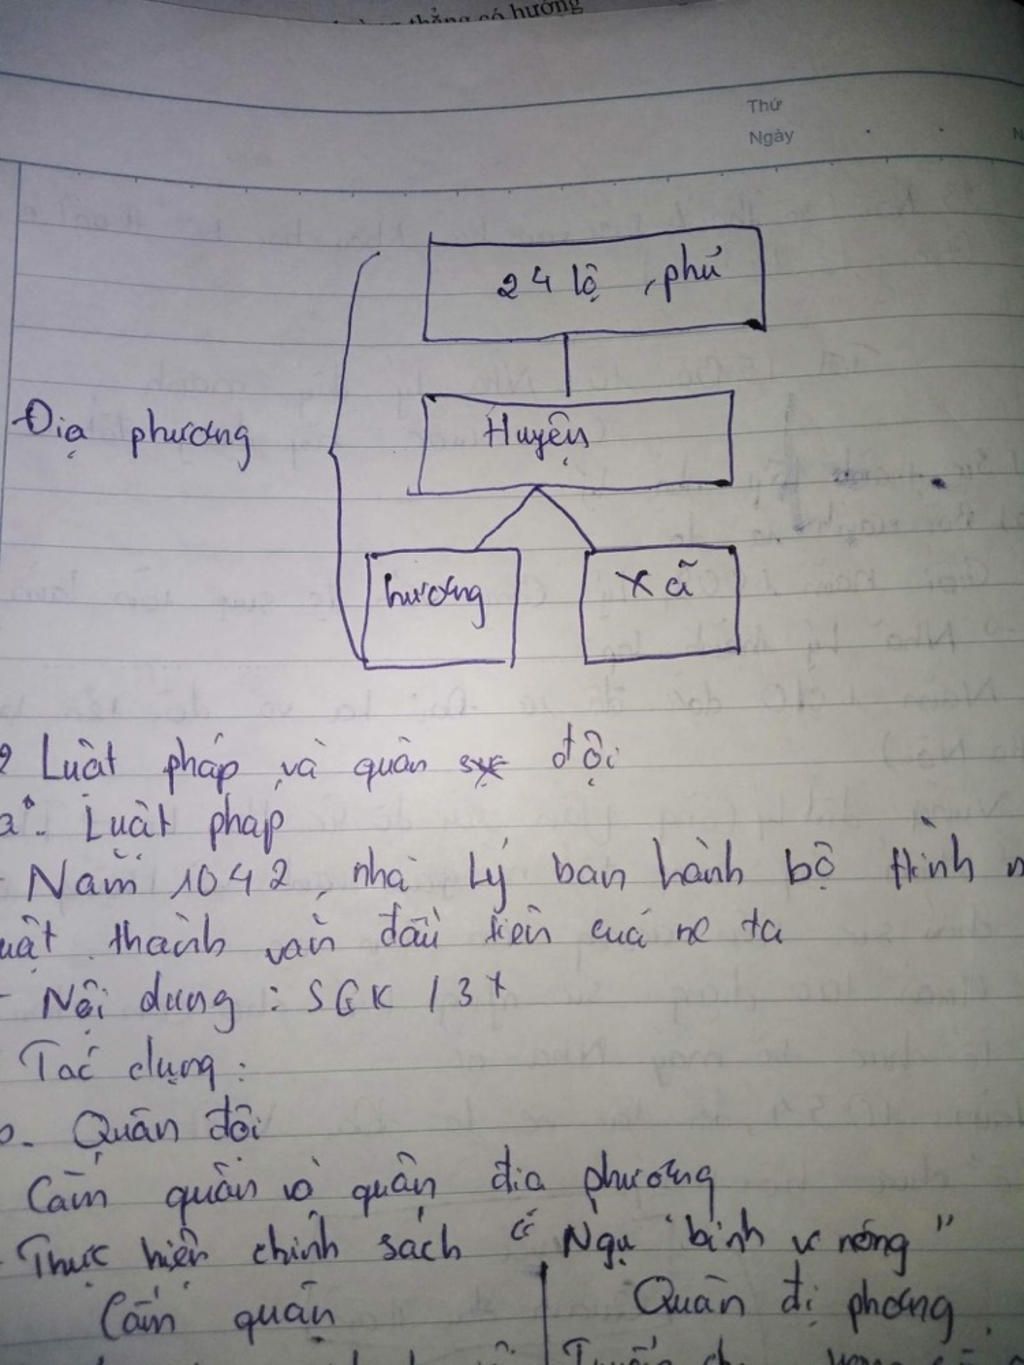 thẳng có hướng
Thứ
Ngày
24 lộ, phủ
Địa phương
Huyện
hương
Xã
2 Luật pháp và quân đội
a. Luật pháp
- Năm 1042, nhà Lý ban hành bộ Hình
uật thành văn đầu tiên của nc ta
- Nội dung : SGK / 37
Tác dụng :
b. Quân đội
Cấm quân và quân địa phương
- Thực hiện chính sách " Ngụ binh ư nông "
Cấm quân
Quân đị phơng